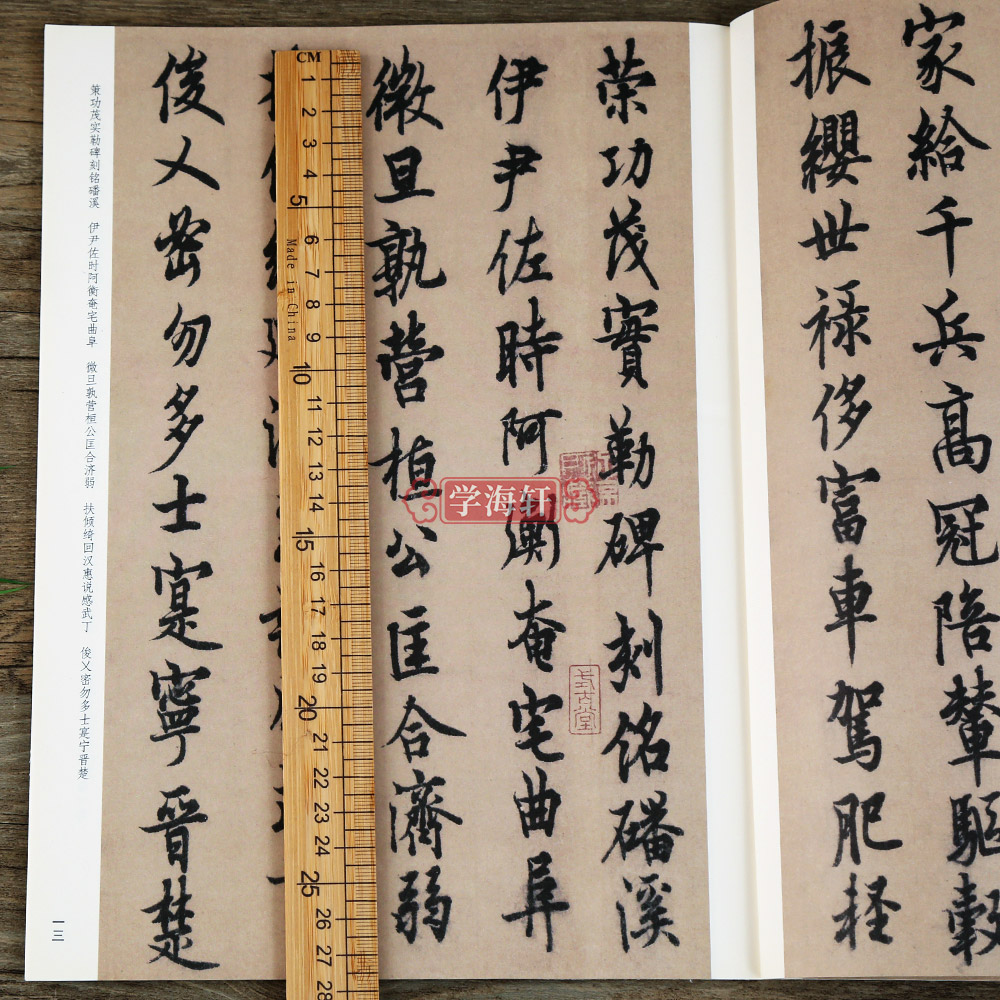 家給千兵高冠陪輦驅轂
振纓世祿侈富車駕肥輕
策功茂實勒碑刻銘磻溪
伊尹佐時阿衡奄宅曲阜
微旦孰營桓公匡合濟弱
俊乂密勿多士寔寧晉楚
策功茂实勒碑刻铭磻溪 伊尹佐时阿衡奄宅曲阜 微旦孰营桓公匡合济弱 扶倾绮回汉惠说感武丁 俊乂密勿多士寔宁晋楚
一三
学海轩
CM
1
2
3
4
5
6
7
8
9
10
11
12
13
14
15
16
17
18
19
20
21
22
23
24
25
26
27
28
Made in China